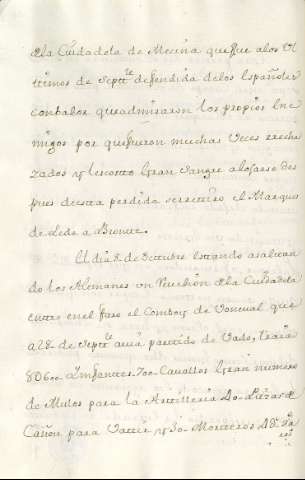 a la Ciudadola de Mecina que fue a los Vl
timos de Septre defendida de los Españoles
con balor que admiraron los propios Ene
migos por que fueron muchas Veces recha
zados y les costto Gran Sangre al ofarse des
pues de esta perdida se rretiro el Marques
de Lede a
El dia 2 de Octubre estando asaltan
do los Alemanes un Rebelion de la Ciudadela
entro en el faro el Comboy de que
a 28 de Septre avia partido de Vado, traia
8060 Infantes 700 Cavallos Gran numero
de Mulos para la Artilleria 20 Piezas de
Cañon para Vattir y 30 Morteros